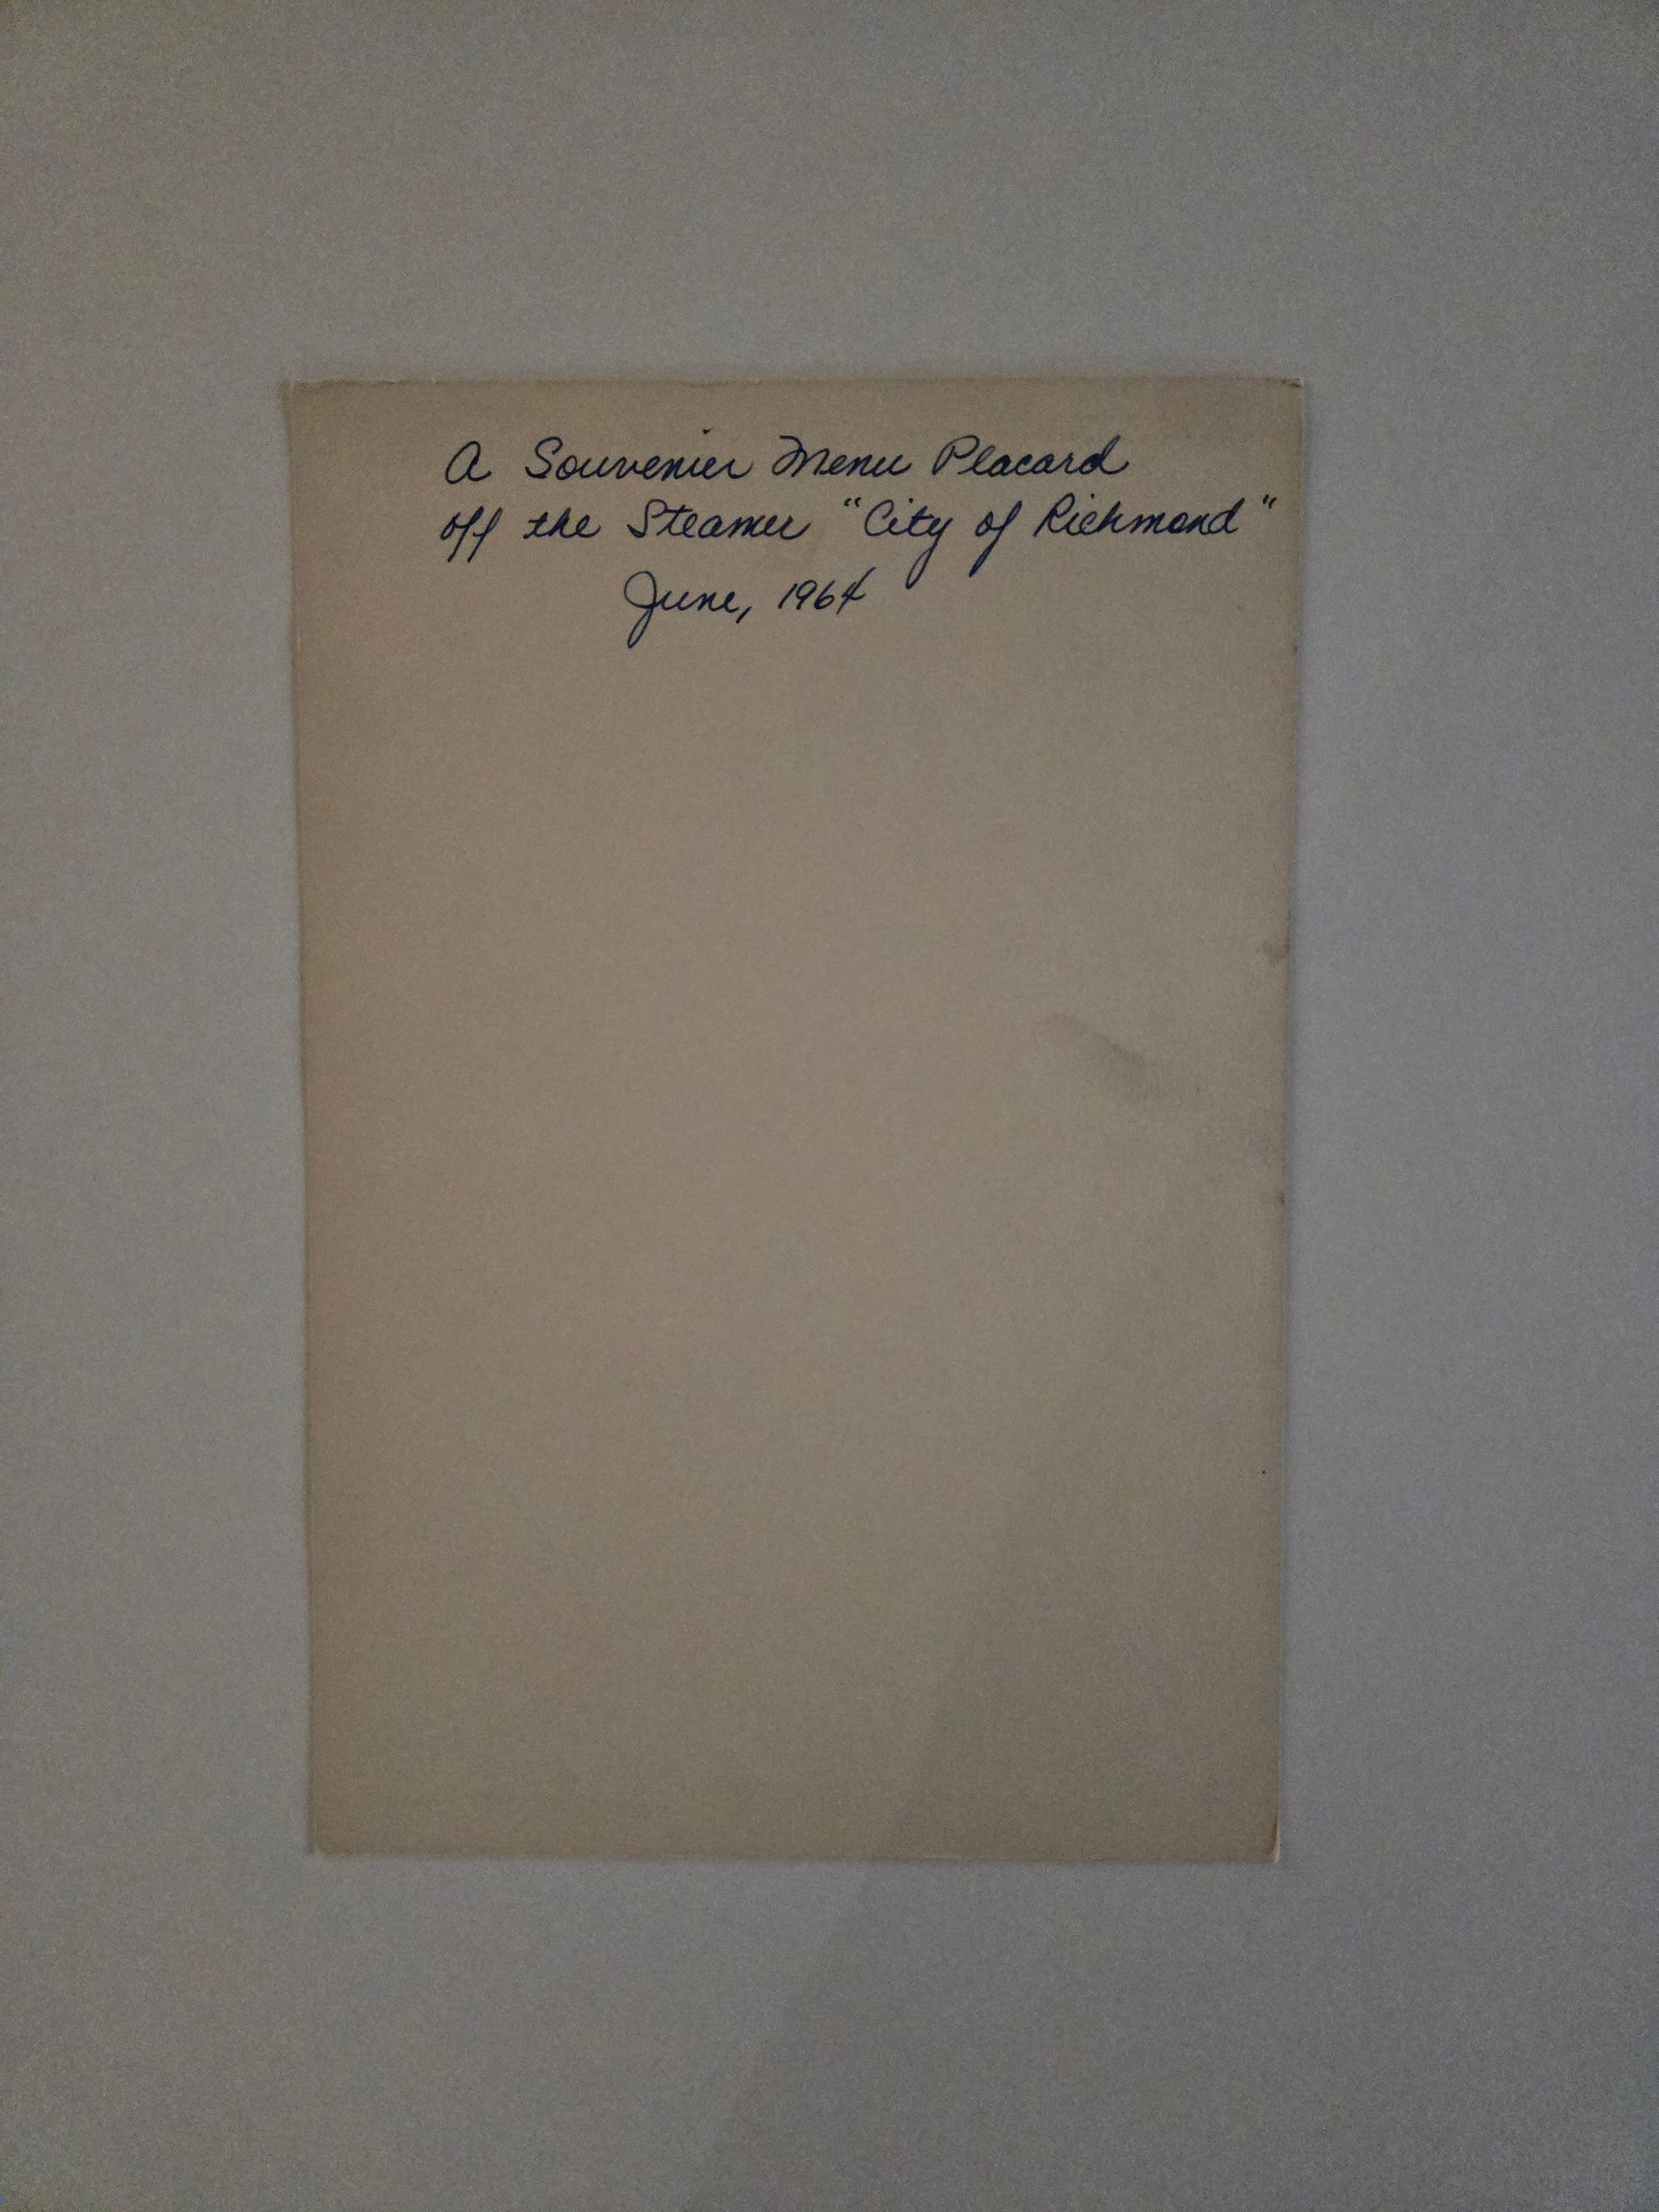 A Souvenier Menu Placard
off the Steamer "City of Richmond"
June, 1964